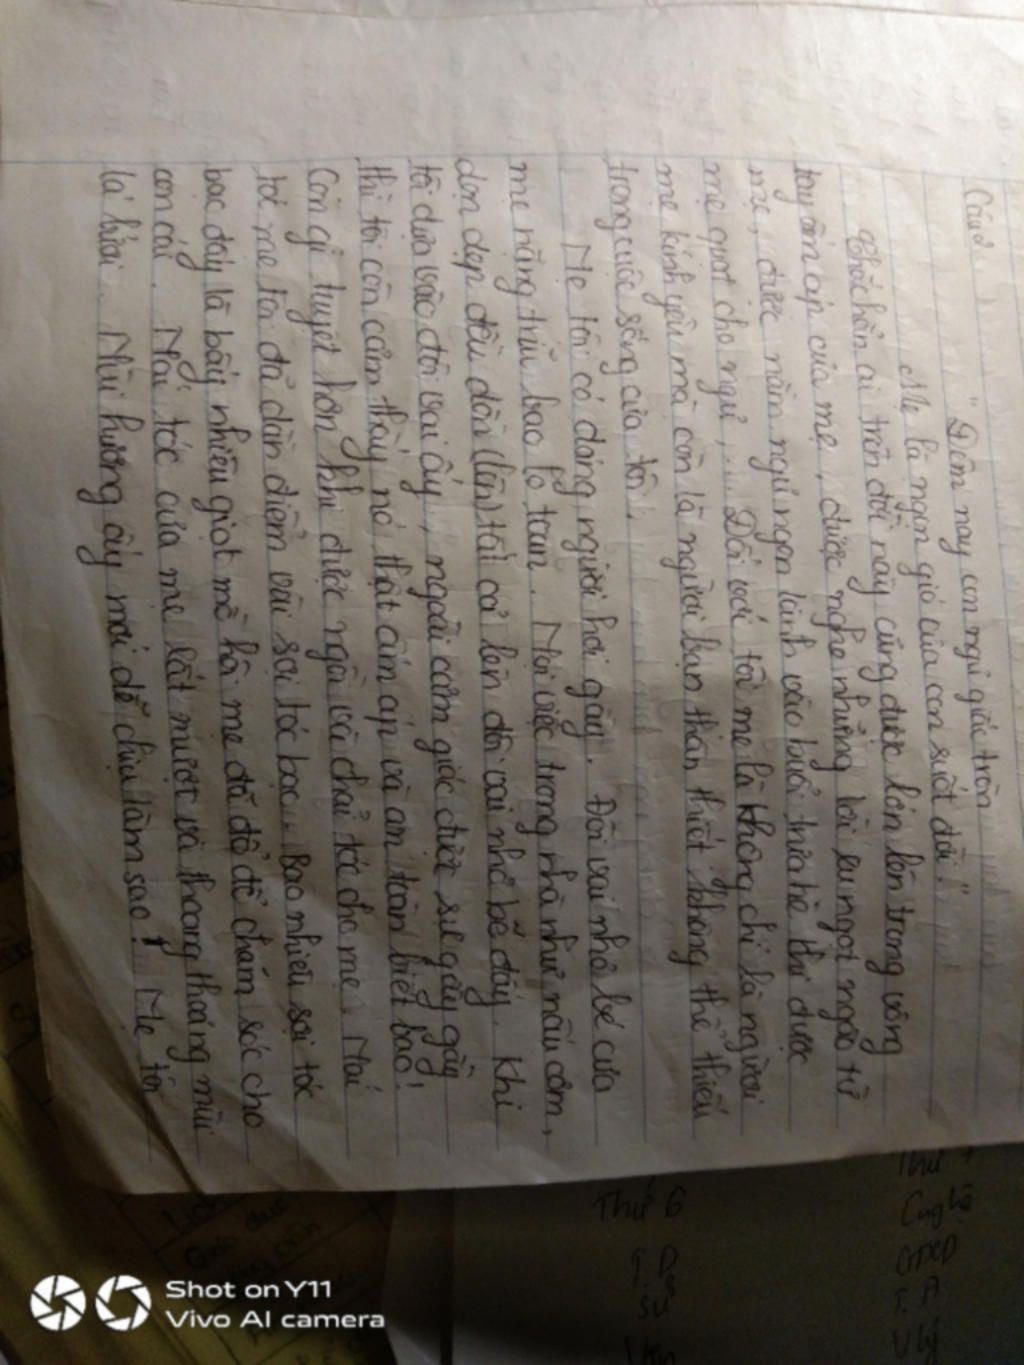 Câu 2
"Đêm nay con ngủ giấc tròn
Mẹ là ngọn gió của con suốt đời."
Chắc hẳn ai trên đời này cũng được lớn lên trong vòng
tay ấm áp của mẹ, được nghe những lời ru ngọt ngào từ
mẹ, được nằm ngủ ngon lành vào buổi trưa hè khi được
mẹ quạt cho ngủ,... Đối với tôi mẹ là không chỉ là người
mẹ kính yêu mà còn là người bạn thân thiết không thể thiếu
trong cuộc sống của tôi.
Mẹ tôi có dáng người hơi gầy. Đôi vai nhỏ bé của
mẹ nặng trĩu bao lo toan. Mọi việc trong nhà như nấu cơm,
dọn dẹp đều dồn (lên) tất cả lên đôi vai nhỏ bé đấy. Khi
tôi dựa vào đôi vai ấy, ngoài cảm giác được sự gầy gầy
thì tôi còn cảm thấy nó thật ấm áp và an toàn biết bao!
Còn gì tuyệt hơn khi được ngồi và chải tóc cho mẹ. Mái
tóc mẹ tôi đã dần điểm vài sợi tóc bạc. Bao nhiêu sợi tóc
bạc đấy là bấy nhiêu giọt mồ hôi mẹ đã đổ để chăm sóc cho
con cái. Mái tóc của mẹ lất mượt và thoang thoảng mùi
lá bưởi. Mùi hương ấy mới dễ chịu làm sao! Mẹ tôi
Thứ 6
T.D
Sử
Văn
Thứ 7
C.nghệ
GDCD
T.A
V lý
Shot on Y11
Vivo AI camera